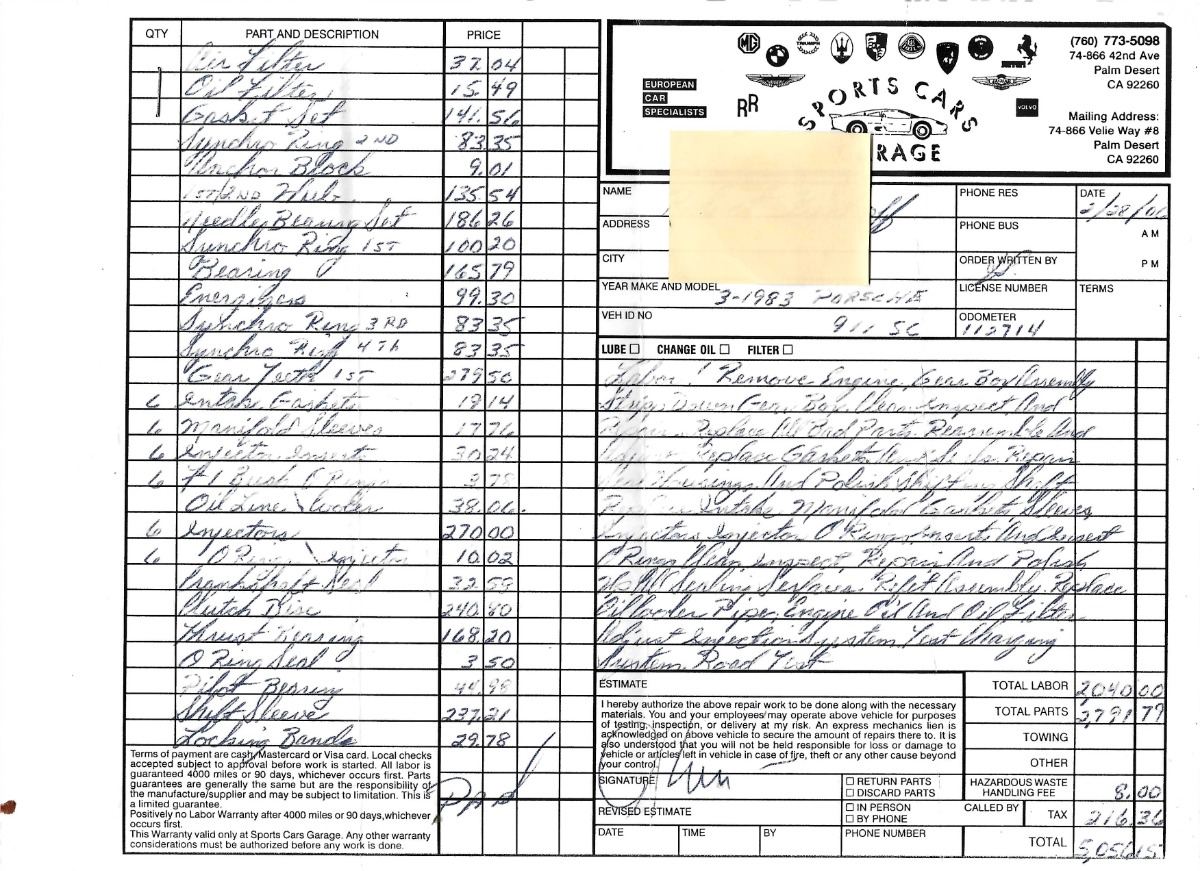 QTY PART AND DESCRIPTION PRICE
Air Filter 37.04
Oil Filter 15.49
Gasket Set 141.56
Synchro Ring 2ND 83.35
Anchor Block 9.01
1ST/2ND Hub 135.54
Needle Bearing Set 186.26
Synchro Ring 1ST 100.20
Bearing 165.79
Energizers 99.30
Synchro Ring 3RD 83.35
Synchro Ring 4Th 83.35
Gear Teeth 1ST 279.50
6 Intake Gaskets 18.14
6 Manifold Sleeves 17.76
6 Injector Inserts 30.24
6 O Rings 3.78
Oil Line \ Cooler 38.06
6 Injectors 270.00
6 O Ring \ Injector 10.02
Seal 32.58
Clutch Disc 240.80
Thrust Bearing 168.20
O Ring Seal 3.50
Pilot Bearing
Shift Sleeve 237.21
Locking Bands 29.78
Terms of payment are cash, Mastercard or Visa card. Local checks
accepted subject to approval before work is started. All labor is
guaranteed 4000 miles or 90 days, whichever occurs first. Parts
guarantees are generally the same but are the responsibility of
the manufacture/supplier and may be subject to limitation. This is
a limited guarantee.
Positively no Labor Warranty after 4000 miles or 90 days,whichever
occurs first.
This Warranty valid only at Sports Cars Garage. Any other warranty
considerations must be authorized before any work is done.
Paid
MG
FERRARI
VOLVO
EUROPEAN
CAR
SPECIALISTS
RR
SPORTS CARS
RAGE
(760) 773-5098
74-866 42nd Ave
Palm Desert
CA 92260
Mailing Address:
74-866 Velie Way #8
Palm Desert
CA 92260
NAME PHONE RES DATE
2/28/06
ADDRESS PHONE BUS A M
CITY ORDER WRITTEN BY P M
YEAR MAKE AND MODEL 3-1983 PORSCHE LICENSE NUMBER TERMS
VEH ID NO 911 SC ODOMETER 112714
LUBE CHANGE OIL FILTER
Labor! Remove Engine, Gear Box Assembly
Strip Down Gear Box, Clean, Inspect And
Replace All Bad Parts. Reassemble And
Replace Gaskets Repair
Housings And Polish Shifting Shift
Intake Manifold Gaskets Sleeves
Injectors, Injector O Rings, Inserts And Insert
O Rings Clean, Inspect, Repair And Polish
All Sealing Surfaces. Refit Assembly. Replace
Oil Cooler Pipe, Engine Oil And Oil Filter
Adjust Injection System Test Charging
System. Road Test
ESTIMATE
I hereby authorize the above repair work to be done along with the necessary
materials. You and your employees/may operate above vehicle for purposes
of testing, inspection, or delivery at my risk. An express mechanics lien is
acknowledged on above vehicle to secure the amount of repairs there to. It is
also understood that you will not be held responsible for loss or damage to
vehicle or articles left in vehicle in case of fire, theft or any other cause beyond
your control.
SIGNATURE
RETURN PARTS
DISCARD PARTS
REVISED ESTIMATE
IN PERSON
BY PHONE
DATE TIME BY PHONE NUMBER
TOTAL LABOR 2,040.00
TOTAL PARTS 2,791.79
TOWING
OTHER
HAZARDOUS WASTE
HANDLING FEE 8.00
CALLED BY TAX 216.36
TOTAL 5,056.15